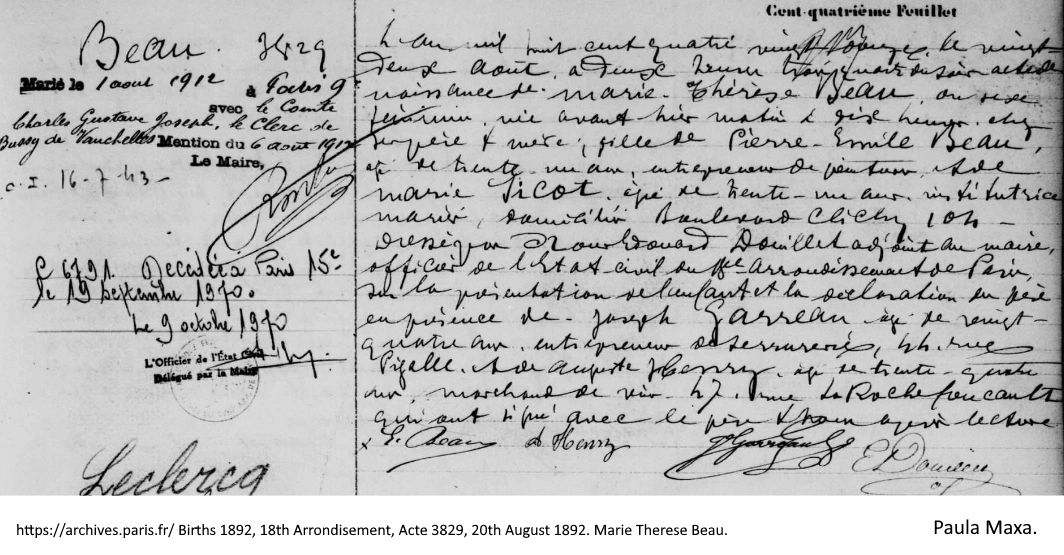 Cent-quatrième Feuillet
Beau. 3829
Marié le 1 août 1912
à Paris 9e
avec le Comte
Charles Gustave Joseph, le Clerc de
Bussy de Vauchelles Mention du 6 août 1912
Le Maire,
16-7-43-
6791. Décédée à Paris 15e
le 19 Septembre 1970.
Le 9 octobre 1970
L'Officier de l'État Civil
Délégué par le Maire
Leclercq
L'an mil huit cent quatre vingt douze, le vingt
deux août, à deux heures trois quarts du soir acte de
naissance de Marie-Thérèse Beau, du sexe
féminin, née avant-hier matin à dix heures, chez
ses père & mère; fille de Pierre-Emile Beau,
âgé de trente-un ans, entrepreneur de peinture & de
Marie Picot, âgée de trente-un ans, institutrice
mariés, domiciliés Boulevard Clichy 104-
Dressé par Nous Edouard Douillet adjoint au maire,
officier de l'État civil du arrondissement de Paris,
sur la présentation de l'enfant et la déclaration du père
en présence de Joseph Garreau âgé de vingt-
quatre ans, entrepreneur de serrurerie, rue
Pigalle, & de Auguste Henry, âgé de trente-quatre
ans, marchand de vin 47, rue La Rochefoucault
qui ont signé avec le père & nous après lecture
E. Beau A Henry J Garreau E Douillet
https://archives.paris.fr/ Births 1892, 18th Arrondisement, Acte 3829, 20th August 1892. Marie Therese Beau.
Paula Maxa.